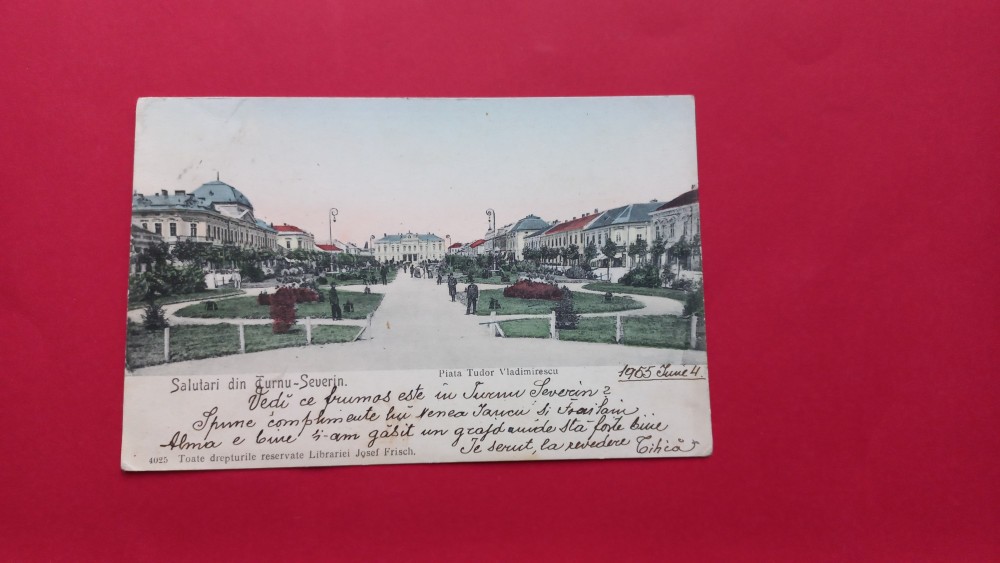 Piata Tudor Vladimirescu
Salutari din Turnu-Severin.
1905 June 4.
Vedĭ ce frumos este în Turnu Severin?
Spune complimente lui nenea Iancu si
Alma e bine i-am găsit un grajd unide stă forte bine
Te serut, la revedere Titică
4025 Toate drepturile reservate Librariei Josef Frisch.